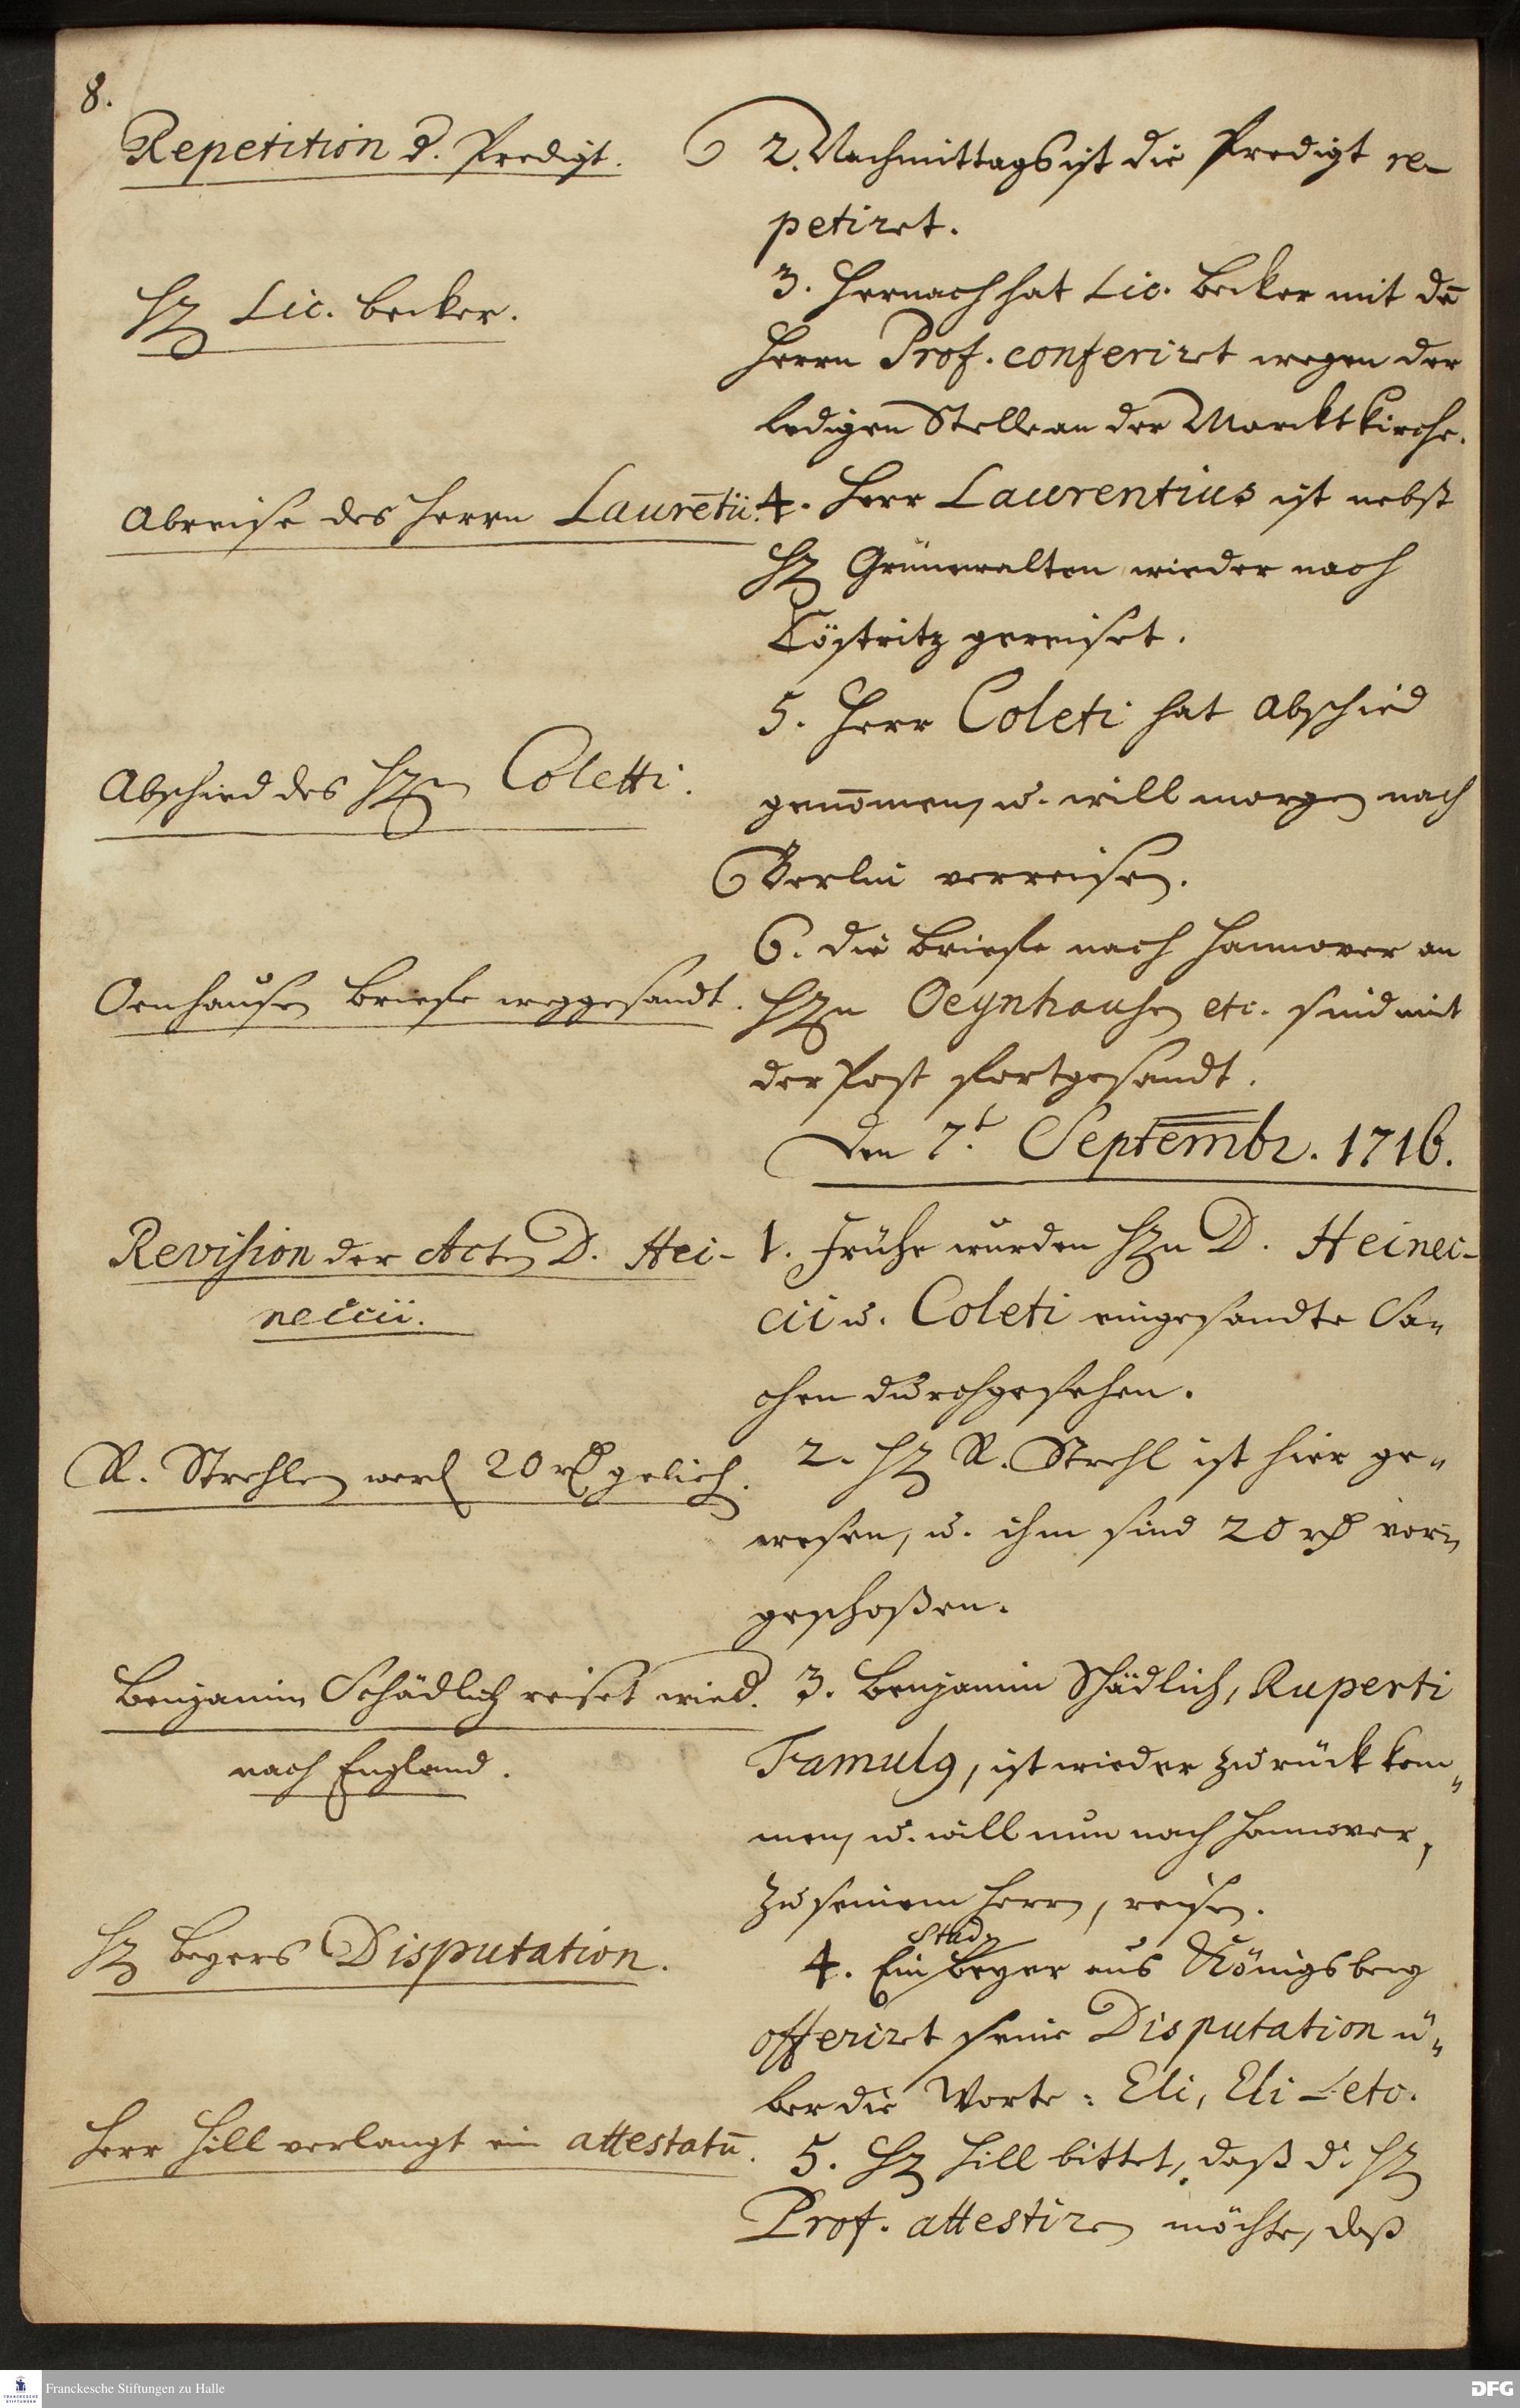 8.
Repetition d. Predigt.
2. Nachmittags ist die Predigt re-
petiret.
H. Lic. Becker.
3. Hernach hat Lic. Becker mit dē
Herrn Prof. conferiret wegen der
ledigen Stelle an der Marcktkirche.
Abreise des Herrn Laurētii.
4. Herr Laurentius ist nebst
H. Grünwalten wieder nach
Köstritz gereiset.
5. Herr Coleti hat Abschied
Abschied des Hn Coletti.
genom̄en, u. will morgen nach
Berlin verreisen.
6. die Briefe nach Hannover an
Oenhausen Briefe weggesandt.
Hn Oeynhausen etc. sind mit
der Post fortgesandt.
Den 7.t Septembr. 1716.
Revision der Acten D. Hei-
neccii.
1. Frühe wurden Hn D. Heinec-
cii u. Coleti eingesandte Sa-
chen durchgesehen.
R. Strehlen werd 20 rh gelieh.
2. H. R. Strehl ist hier ge-
wesen, u. ihm sind 20 rh vor-
geschoßen.
Benjamin Schädlich reiset wied.
nach England.
3. Benjamin Schädlich, Ruperti
Famulg, ist wieder zurück kom-
men, u. will nun nach Hannover,
zu seinem Herrn, reisen.
H. Beyers Disputation.
Stud.
4. Ein Beyer aus Königsberg
offeriret seine Disputation ü-
ber die Worte: Eli, Eli L. etc.
Herr Hill verlangt ein attestatū.
5. H. Hill bittet, daß d. H.
Prof. attestiren möchte, daß
Franckesche Stiftungen zu Halle
DFG